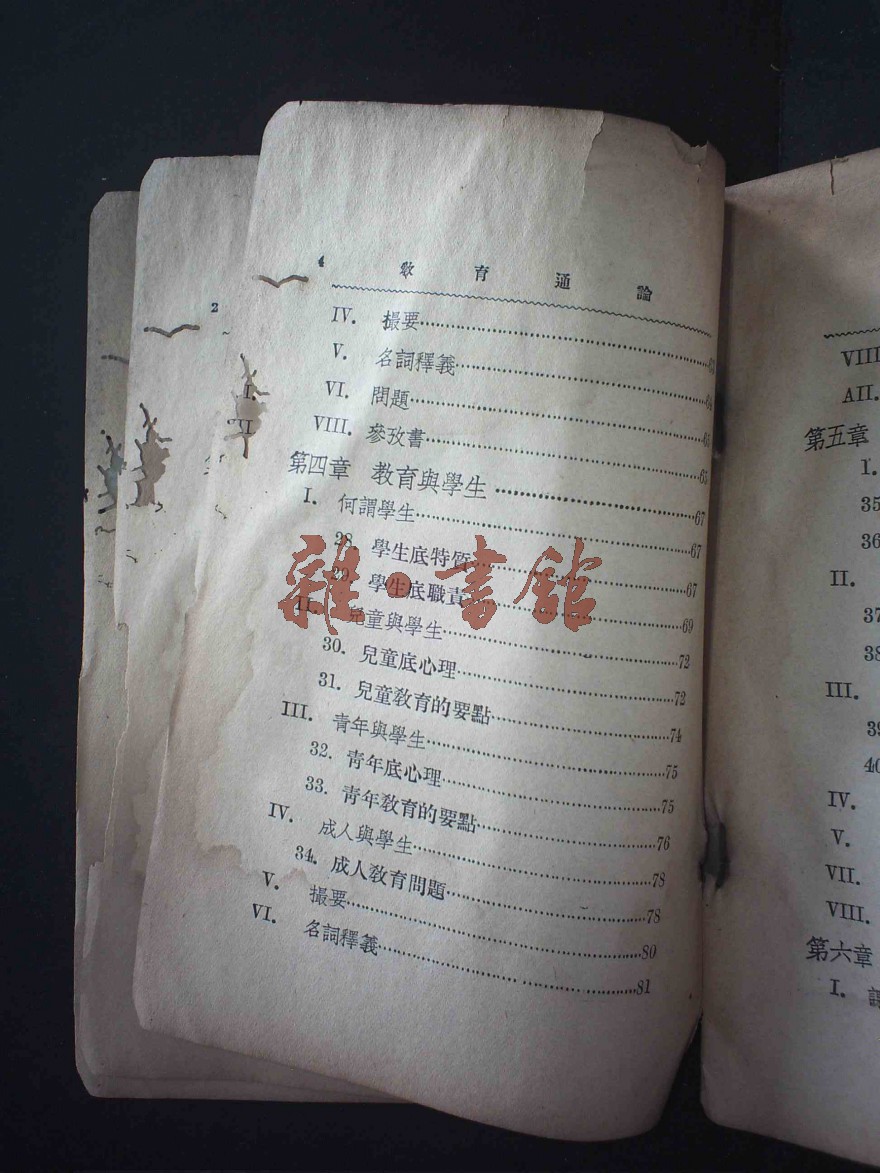 4 敎育通論
IV. 撮要……63
V. 名詞釋義……64
VI. 問題……65
VIII. 參攷書……65
第四章 教育與學生……67
I. 何謂學生……67
28. 學生底特質……67
29. 學生底職責……69
II. 兒童與學生……72
30. 兒童底心理……72
31. 兒童敎育的要點……74
III. 青年與學生……75
32. 青年底心理……75
33. 青年敎育的要點……76
IV. 成人與學生……78
34. 成人敎育問題……78
V. 撮要……80
VI. 名詞釋義……81
雜·書館
2
I.
II.
VIII
AII.
第五章
1.
35
36
II.
37
38
III.
39
40
IV.
V.
VII.
VIII.
第六章
I.